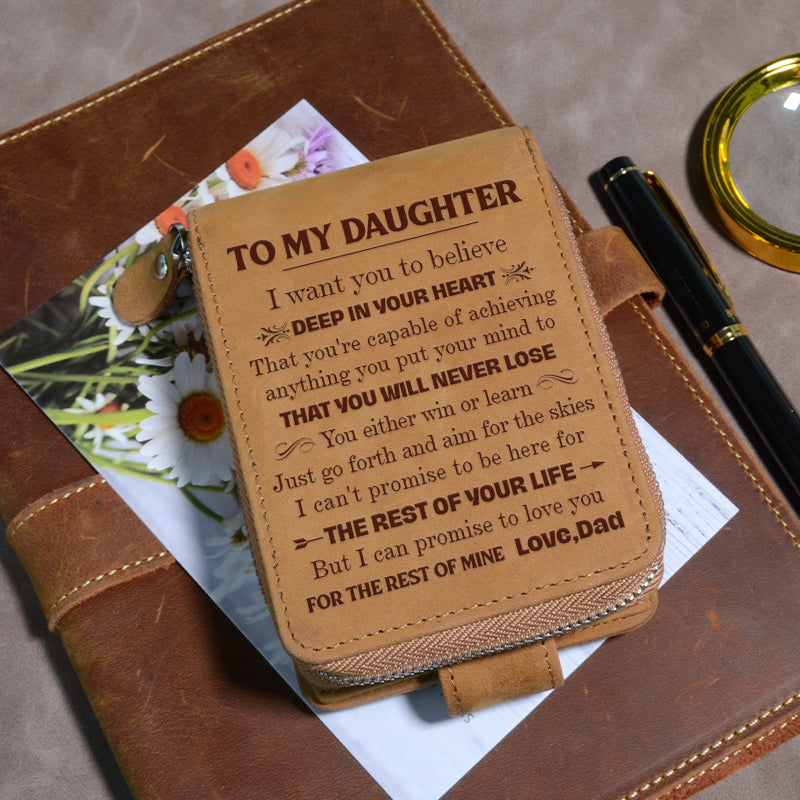 TO MY DAUGHTER
I want you to believe
DEEP IN YOUR HEART
That you're capable of achieving
anything you put your mind to
THAT YOU WILL NEVER LOSE
You either win or learn
Just go forth and aim for the skies
I can't promise to be here for
THE REST OF YOUR LIFE
But I can promise to love you
FOR THE REST OF MINE Love,Dad